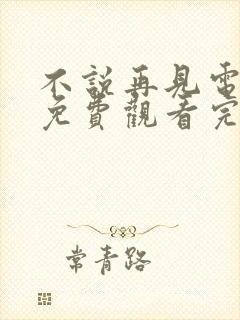 不說再見電
免費觀看完
常青路